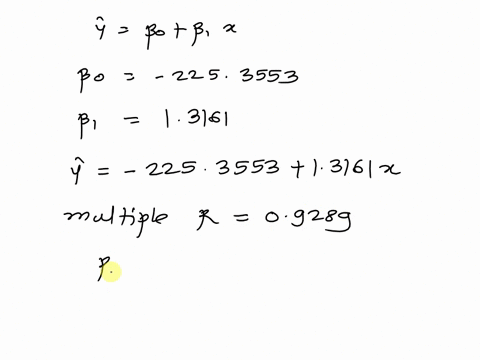 ŷ = β0 + β1 x
β0 = -225.3553
β1 = 1.3161
ŷ = -225.3553 + 1.3161x
multiple R = 0.9289